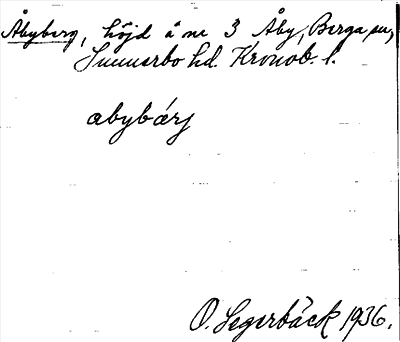 Åbyberg, höjd å nr 3 Åby, Berga sn,
Sunnerbo hd. Kronob. l.
abybárj
O. Segerbäck 1936.